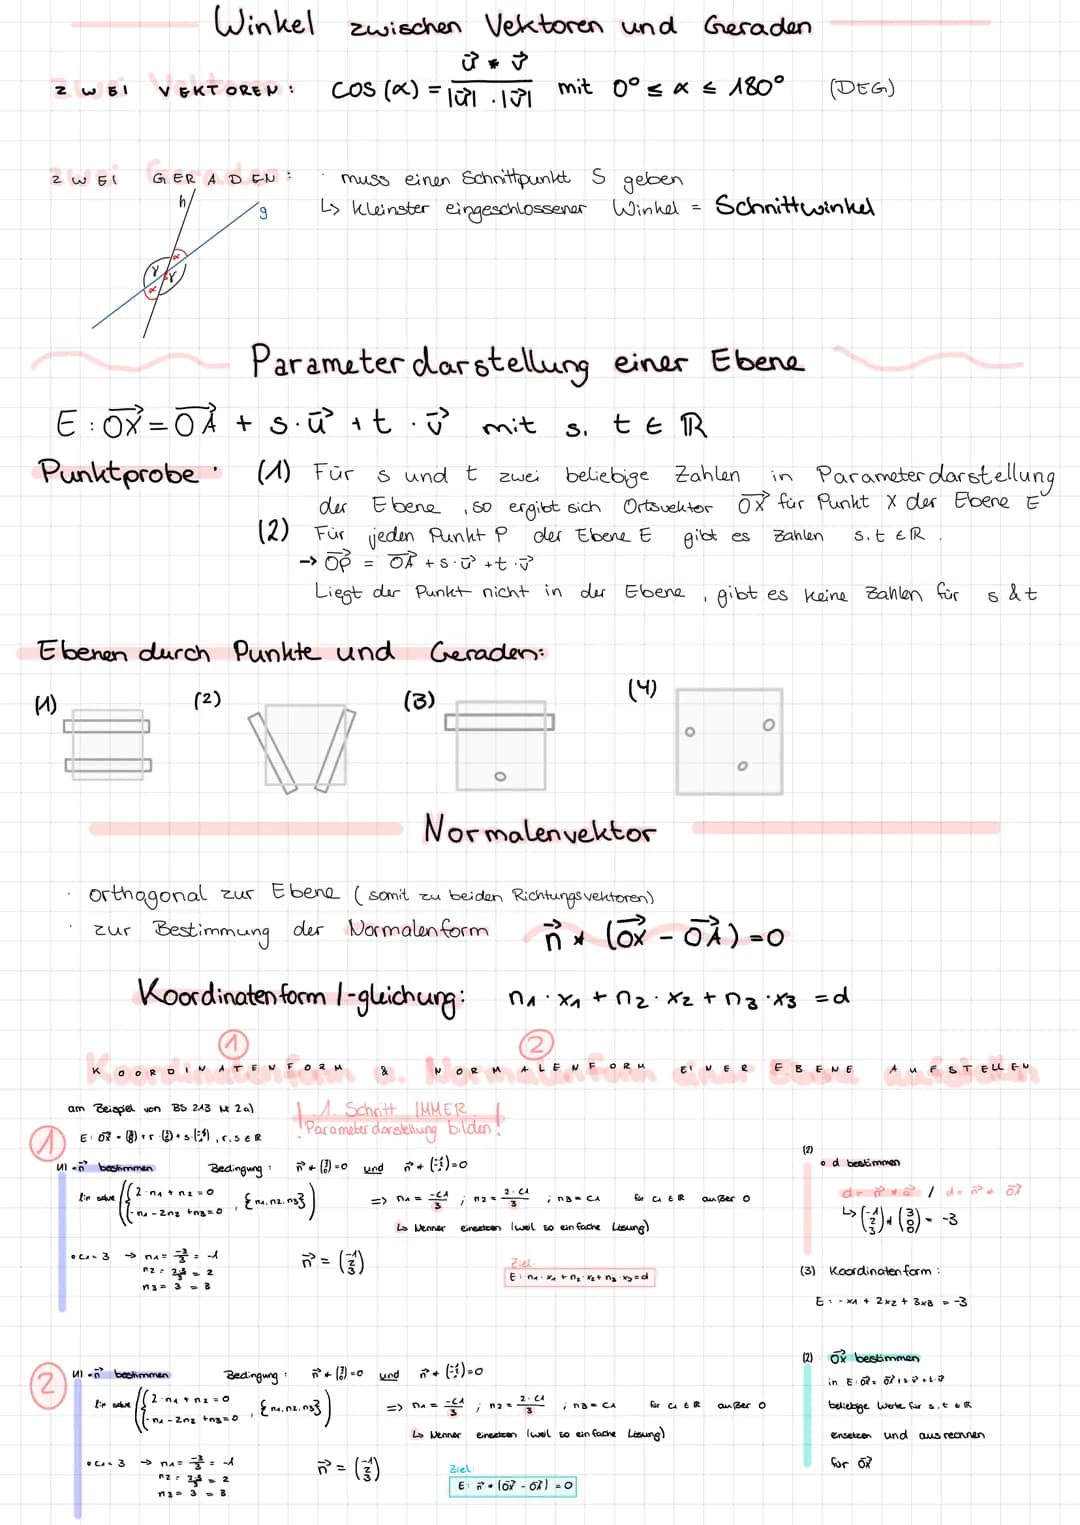 Winkel zwischen Vektoren und Geraden
ZWEI VEKTOREN: cos(α) = u⃗ * v⃗ / |u⃗| · |v⃗| mit 0° ≤ α ≤ 180° (DEG)
ZWEI GERADEN: · muss einen Schnittpunkt S geben
↳ kleinster eingeschlossener Winkel = Schnittwinkel
h
g
α
γ
γ
α
Parameterdarstellung einer Ebene
E: OX⃗ = OA⃗ + s·u⃗ + t·v⃗ mit s, t ∈ ℝ
Punktprobe: (1) Für s und t zwei beliebige Zahlen in Parameterdarstellung
der Ebene, so ergibt sich Ortsvektor OX⃗ für Punkt X der Ebene E
(2) Für jeden Punkt P der Ebene E gibt es Zahlen s, t ∈ ℝ.
→ OP⃗ = OA⃗ + s·u⃗ + t·v⃗
Liegt der Punkt nicht in der Ebene, gibt es keine Zahlen für s & t
Ebenen durch Punkte und Geraden:
(1) (2) (3) (4)
Normalenvektor
· orthogonal zur Ebene (somit zu beiden Richtungsvektoren)
· zur Bestimmung der Normalenform n⃗ * (OX⃗ - OA⃗) = 0
Koordinatenform/-gleichung: n1·x1 + n2·x2 + n3·x3 = d
① ②
KOORDINATENFORM & NORMALENFORM EINER EBENE AUFSTELLEN
am Beispiel von BS 213 Nr 2a)
! 1. Schritt IMMER !
! Parameterdarstellung bilden!
①
(1) · n⃗ bestimmen Bedingung: =0 und =0
lin solve ({2·n1 + n2 = 0, -n1 - 2n2 + n3 = 0, {n1, n2, n3})
=> n1 = -c1/3 ; n2 = 2·c1/3 ; n3 = c1 für c1 ∈ ℝ außer 0
↳ Nenner einsetzen (weil so einfache Lösung)
· c1 = 3 → n1 = -3/3 = -1
n2 = 2·3/3 = 2
n3 = 3 = 3
n⃗ = (-1 2 3)
Ziel:
E: n1·x1 + n2·x2 + n3·x3 = d
(2)
· d bestimmen
d = n⃗ * a⃗ / d = n⃗ * OA⃗
↳ (-1 2 3) * (3 0 0) = -3
(3) Koordinatenform:
E: -x1 + 2x2 + 3x3 = -3
②
(1) · n⃗ bestimmen Bedingung: =0 und =0
lin solve ({2·n1 + n2 = 0, -n1 - 2n2 + n3 = 0, {n1, n2, n3})
=> n1 = -c1/3 ; n2 = 2·c1/3 ; n3 = c1 für c1 ∈ ℝ außer 0
↳ Nenner einsetzen (weil so einfache Lösung)
· c1 = 3 → n1 = -3/3 = -1
n2 = 2·3/3 = 2
n3 = 3 = 3
n⃗ = (-1 2 3)
Ziel:
E: n⃗ * (OX⃗ - OA⃗) = 0
(2) OX⃗ bestimmen
beliebige Werte für s, t ∈ ℝ
einsetzen und ausrechnen
für OX⃗